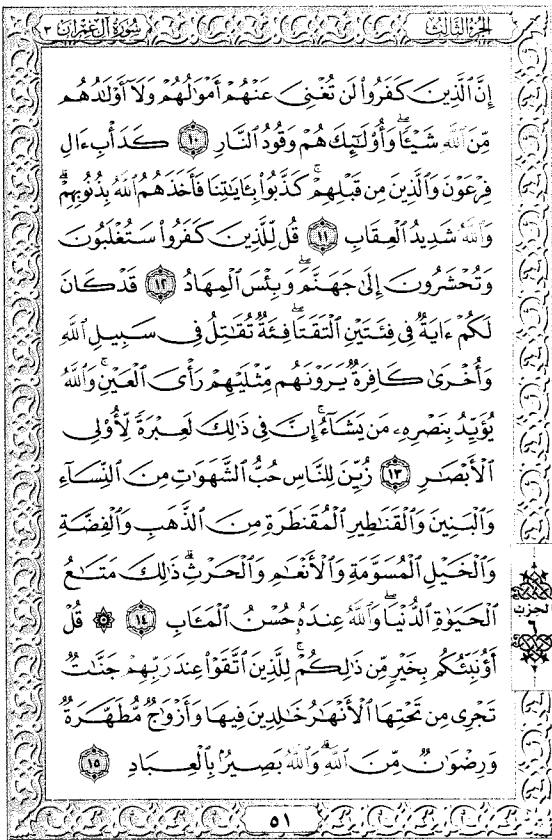 سُورَةُ آلِ عِمْرَانَ ٣
الجُزْءُ الثَّالِثُ
إِنَّ ٱلَّذِينَ كَفَرُوا۟ لَن تُغْنِىَ عَنْهُمْ أَمْوَٰلُهُمْ وَلَآ أَوْلَـٰدُهُم
مِّنَ ٱللَّهِ شَيْـًٔا ۖ وَأُو۟لَـٰٓئِكَ هُمْ وَقُودُ ٱلنَّارِ ١٠ كَدَأْبِ ءَالِ
فِرْعَوْنَ وَٱلَّذِينَ مِن قَبْلِهِمْ ۚ كَذَّبُوا۟ بِـَٔايَـٰتِنَا فَأَخَذَهُمُ ٱللَّهُ بِذُنُوبِهِمْ ۗ
وَٱللَّهُ شَدِيدُ ٱلْعِقَابِ ١١ قُل لِّلَّذِينَ كَفَرُوا۟ سَتُغْلَبُونَ
وَتُحْشَرُونَ إِلَىٰ جَهَنَّمَ ۚ وَبِئْسَ ٱلْمِهَادُ ١٢ قَدْ كَانَ
لَكُمْ ءَايَةٌ فِى فِئَتَيْنِ ٱلْتَقَتَا ۖ فِئَةٌ تُقَـٰتِلُ فِى سَبِيلِ ٱللَّهِ
وَأُخْرَىٰ كَافِرَةٌ يَرَوْنَهُم مِّثْلَيْهِمْ رَأْىَ ٱلْعَيْنِ ۚ وَٱللَّهُ
يُؤَيِّدُ بِنَصْرِهِۦ مَن يَشَآءُ ۗ إِنَّ فِى ذَٰلِكَ لَعِبْرَةً لِّأُو۟لِى
ٱلْأَبْصَـٰرِ ١٣ زُيِّنَ لِلنَّاسِ حُبُّ ٱلشَّهَوَٰتِ مِنَ ٱلنِّسَآءِ
وَٱلْبَنِينَ وَٱلْقَنَـٰطِيرِ ٱلْمُقَنطَرَةِ مِنَ ٱلذَّهَبِ وَٱلْفِضَّةِ
وَٱلْخَيْلِ ٱلْمُسَوَّمَةِ وَٱلْأَنْعَـٰمِ وَٱلْحَرْثِ ۗ ذَٰلِكَ مَتَـٰعُ
ٱلْحَيَوٰةِ ٱلدُّنْيَا ۖ وَٱللَّهُ عِندَهُۥ حُسْنُ ٱلْمَـَٔابِ ١٤ ۞ قُلْ
أَؤُنَبِّئُكُم بِخَيْرٍ مِّن ذَٰلِكُمْ ۚ لِلَّذِينَ ٱتَّقَوْا۟ عِندَ رَبِّهِمْ جَنَّـٰتٌ
تَجْرِى مِن تَحْتِهَا ٱلْأَنْهَـٰرُ خَـٰلِدِينَ فِيهَا وَأَزْوَٰجٌ مُّطَهَّرَةٌ
وَرِضْوَٰنٌ مِّنَ ٱللَّهِ ۗ وَٱللَّهُ بَصِيرٌۢ بِٱلْعِبَادِ ١٥
الحِزْبُ
٦
٥١